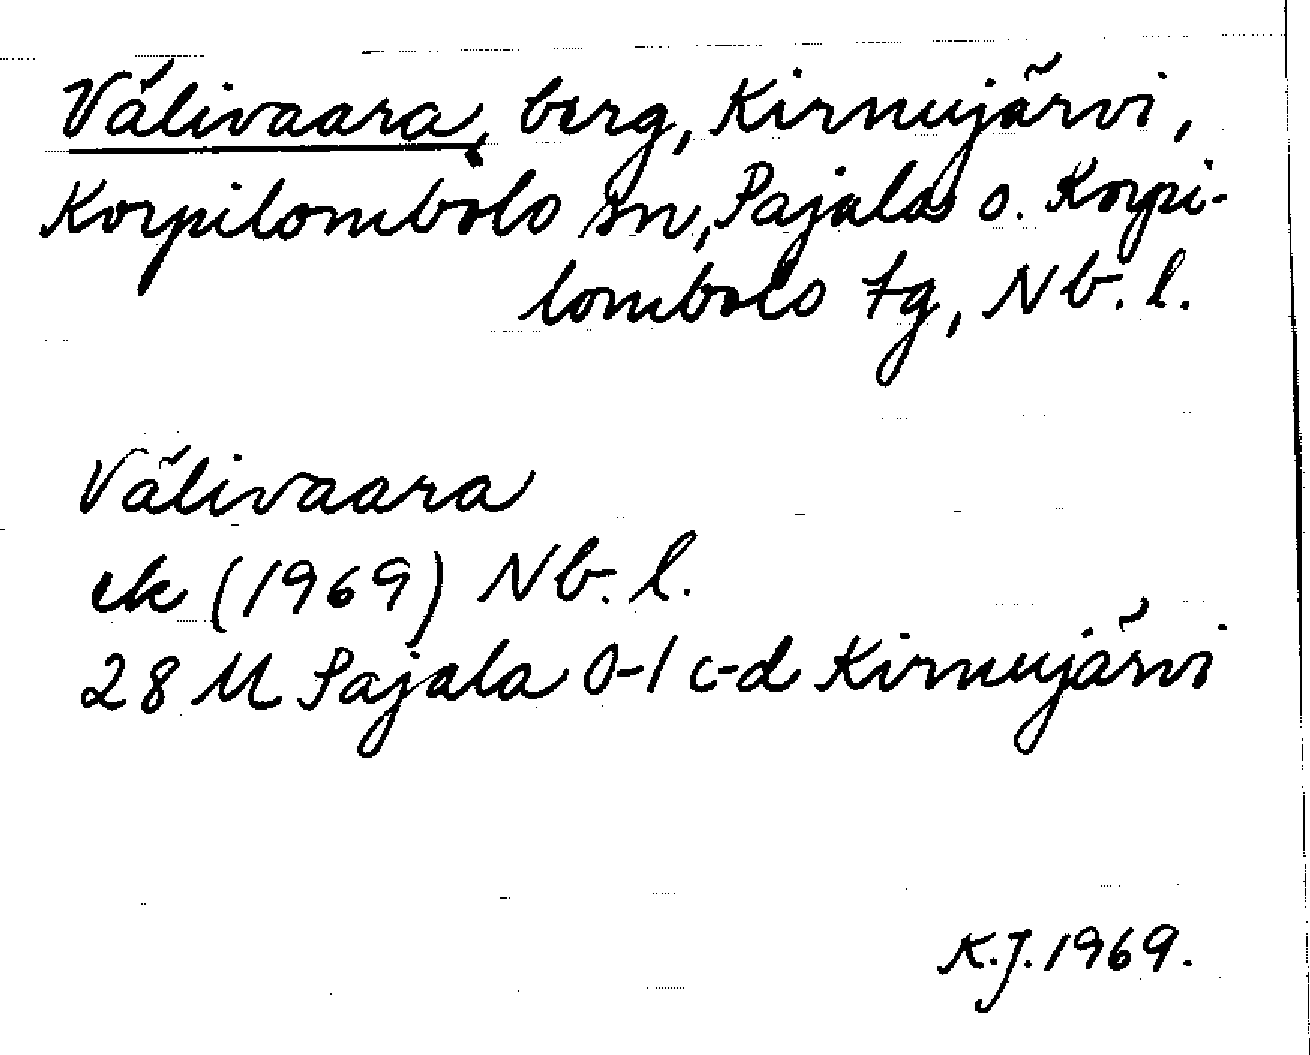 Välivaara, berg, Kirnujärvi,
Korpilombolo sn, Pajala o. Korpi-
lombolo tg, Nb. l.
Välivaara
ek (1969) Nb. l.
28 M Pajala 0-1 c-d Kirnujärvi
K.J. 1969.